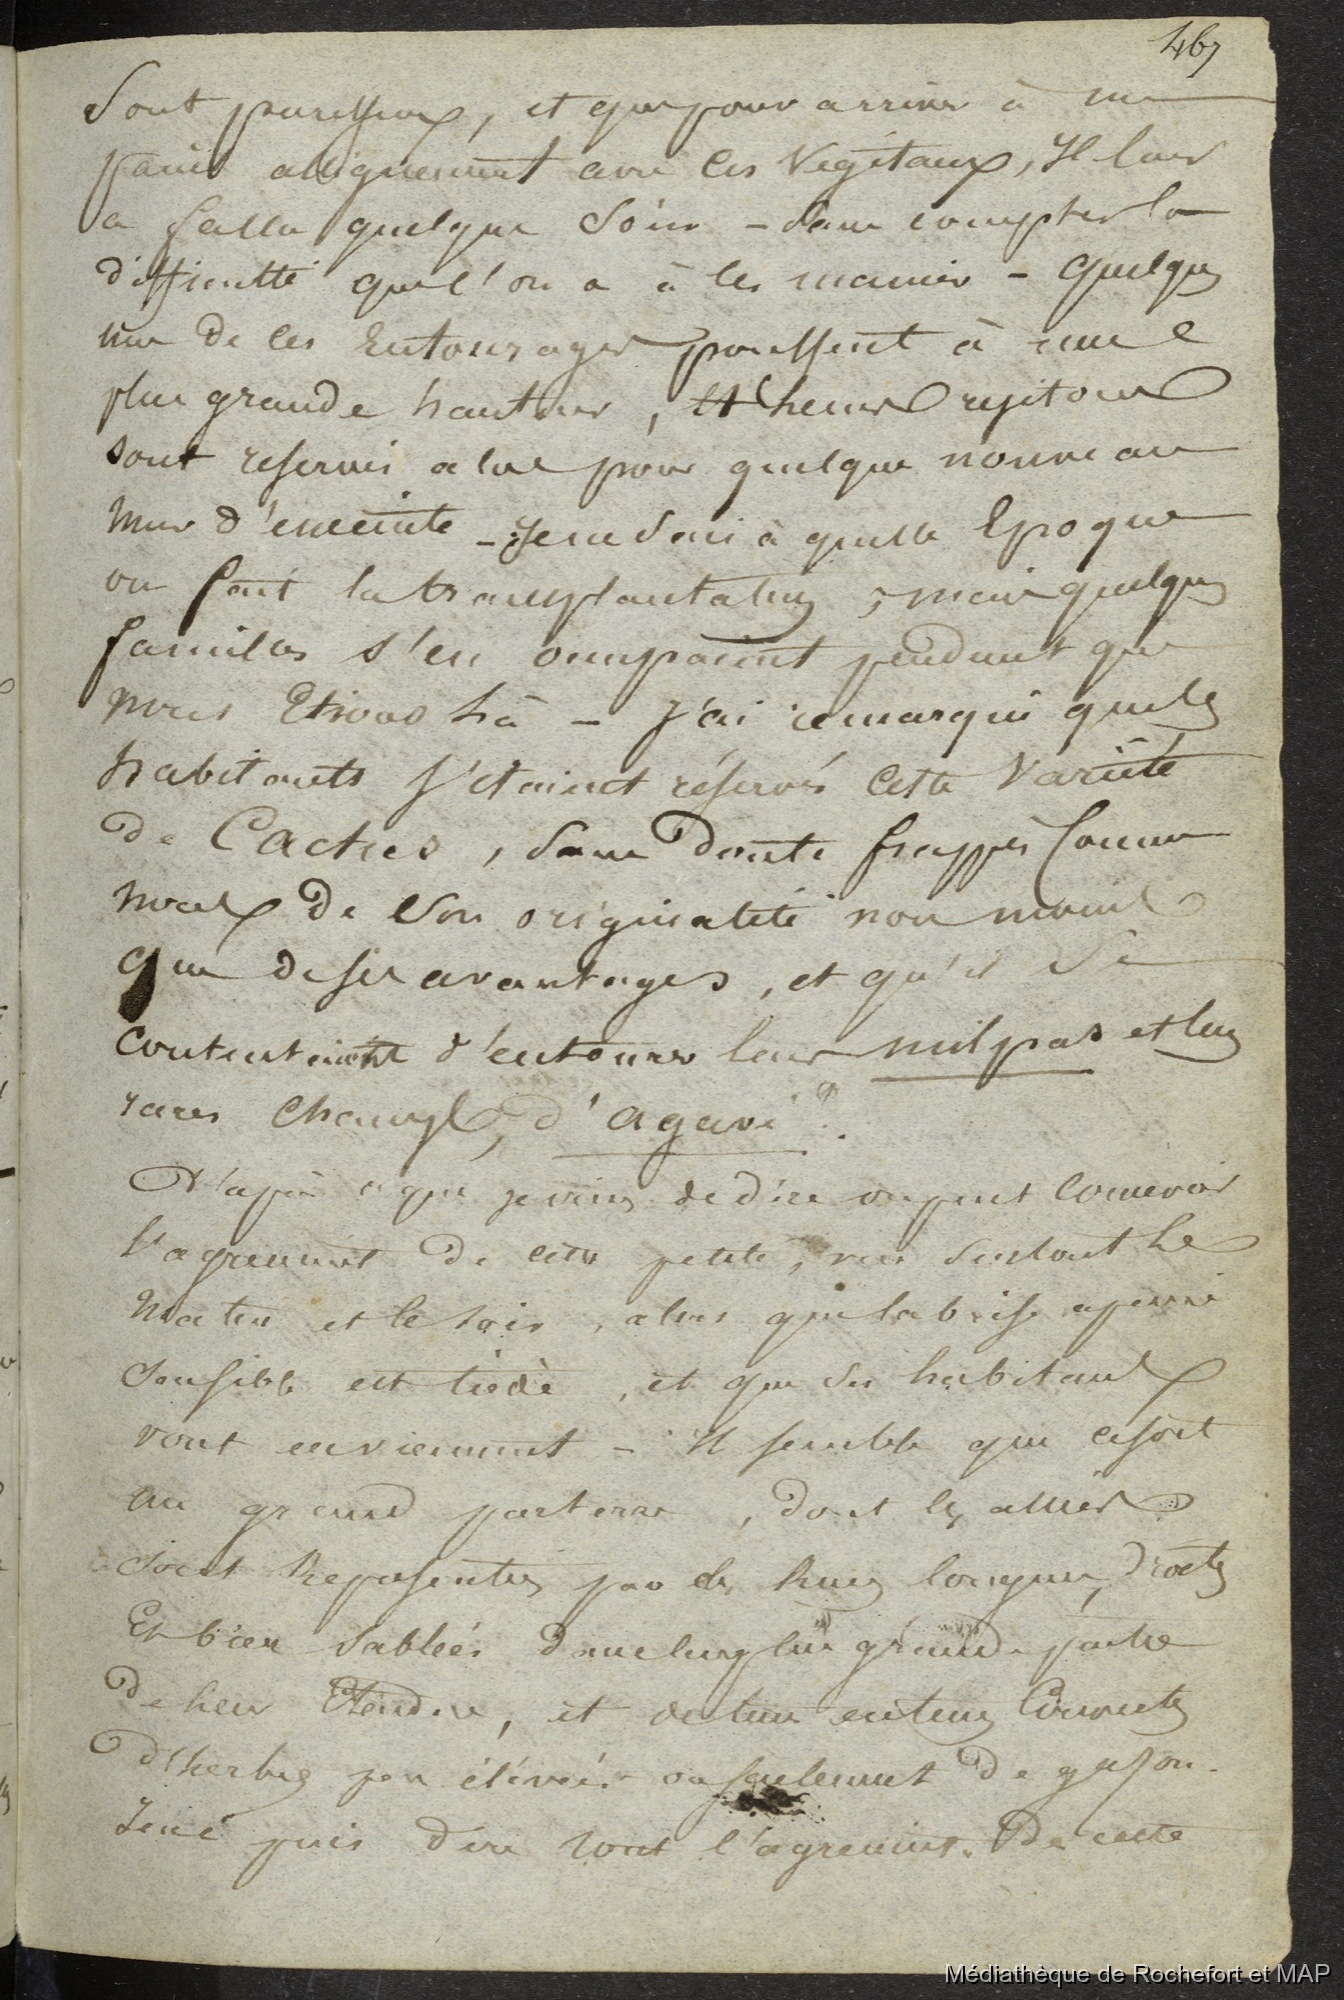 467
Sont paresseux, et que pour arriver à un
pareil allignement avec ces Vegétaux, Il leur
a fallu quelque soin - sans compter la
difficulté que l'on a à les manier - quelques
uns de ces Entourages poussent à une
plus grande hauteur, & leurs rejetons
sont reservés alors pour quelque nouveau
mur d'enceinte - Je ne sais à quelle Epoque
on fait la transplantation, mais quelques
familles s'en occupaient pendant que
nous Etions là - J'ai remarqué que les
habitants s'etaient réservés cette Variété
de Cactus, Sans doute frappés Comme
nous de son originalité non moins
que de ses avantages, et qu'ils se
contentaient d'entourer leurs milpas et leurs
rares Champs, d'agavé.
D'après ce que je viens de dire on peut Concevoir
l'agrement de cette petite, vue surtout le
matin et le soir, alors que la brise a peine
sensible est tiède, et que les habitants
vont en viennent - Il semble que ce soit
un grand parterre, dont les allées
sont Représentées par des Rues longues, droites
Et bien sablées dans leur plus grande partie
de leur Etendue, et de tems en tems Couvertes
d'herbes peu élévées ou seulement de gason.
Je ne puis dire tout l'agrement de cette
Médiathèque de Rochefort et MAP